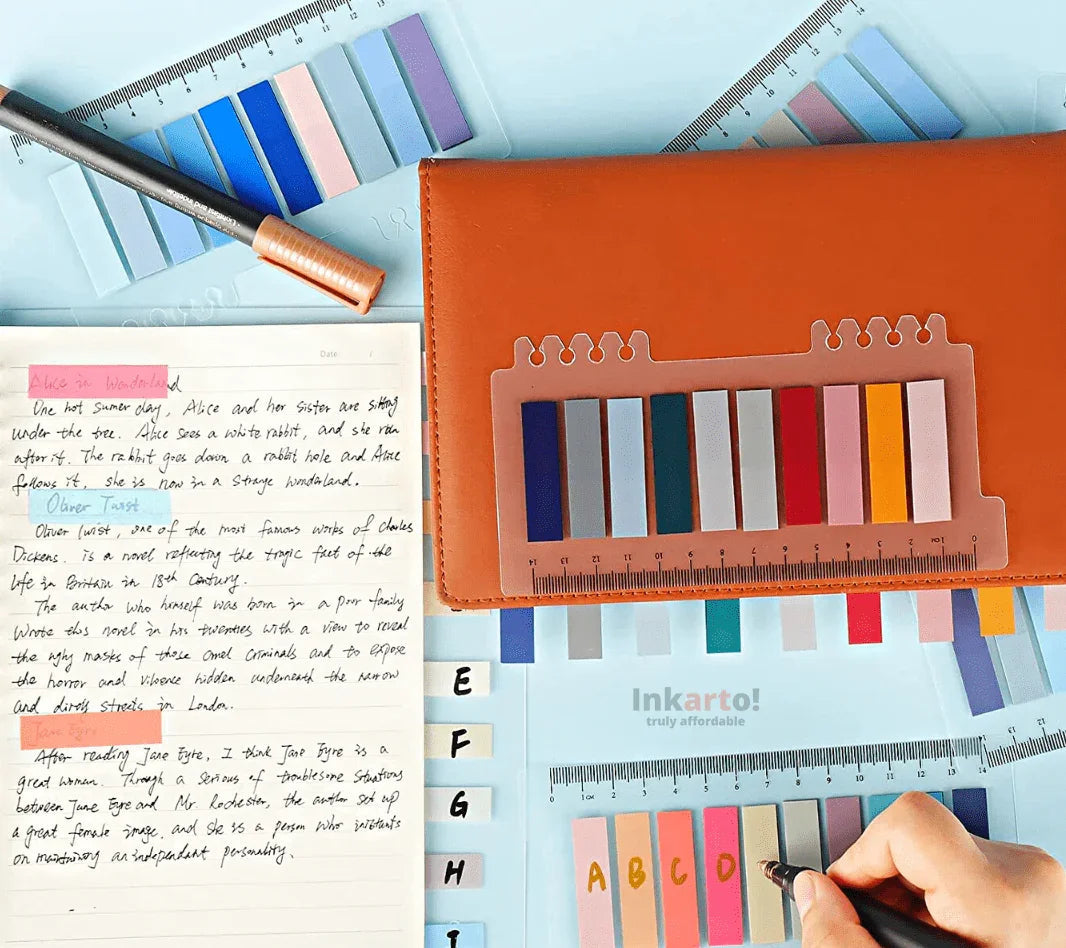 Date: /
Alice in Wonderland
One hot sumer day, Alice and her sister are sitting
under the tree. Alice sees a white rabbit, and she run
after it. The rabbit goes down a rabbit hole and Alice
follows it, she is now in a strange wonderland.
Oliver Twist
Oliver Twist, one of the most famous works of Charles
Dickens. is a novel reflecting the tragic fact of the
life in Britain in 18th Century.
The author who himself was born in a poor family
wrote this novel in his twenties with a view to reveal
the ugly masks of those cruel criminals and to expose
the horror and violence hidden underneath the narrow
and dirty streets in London.
Jane Eyre
After reading Jane Eyre, I think Jane Eyre is a
great woman. Through a serious of troublesome situations
between Jane Eyre and Mr. Rochester, the author set up
a great female image, and she is a person who insistants
on maintaining an independant personality.
14 13 12 11 10 9 8 7 6 5 4 3 2 1CM 0
E
F
G
H
I
Inkarto!
truly affordable
0 1CM 2 3 4 5 6 7 8 9 10 11 12 13 14
A B C D